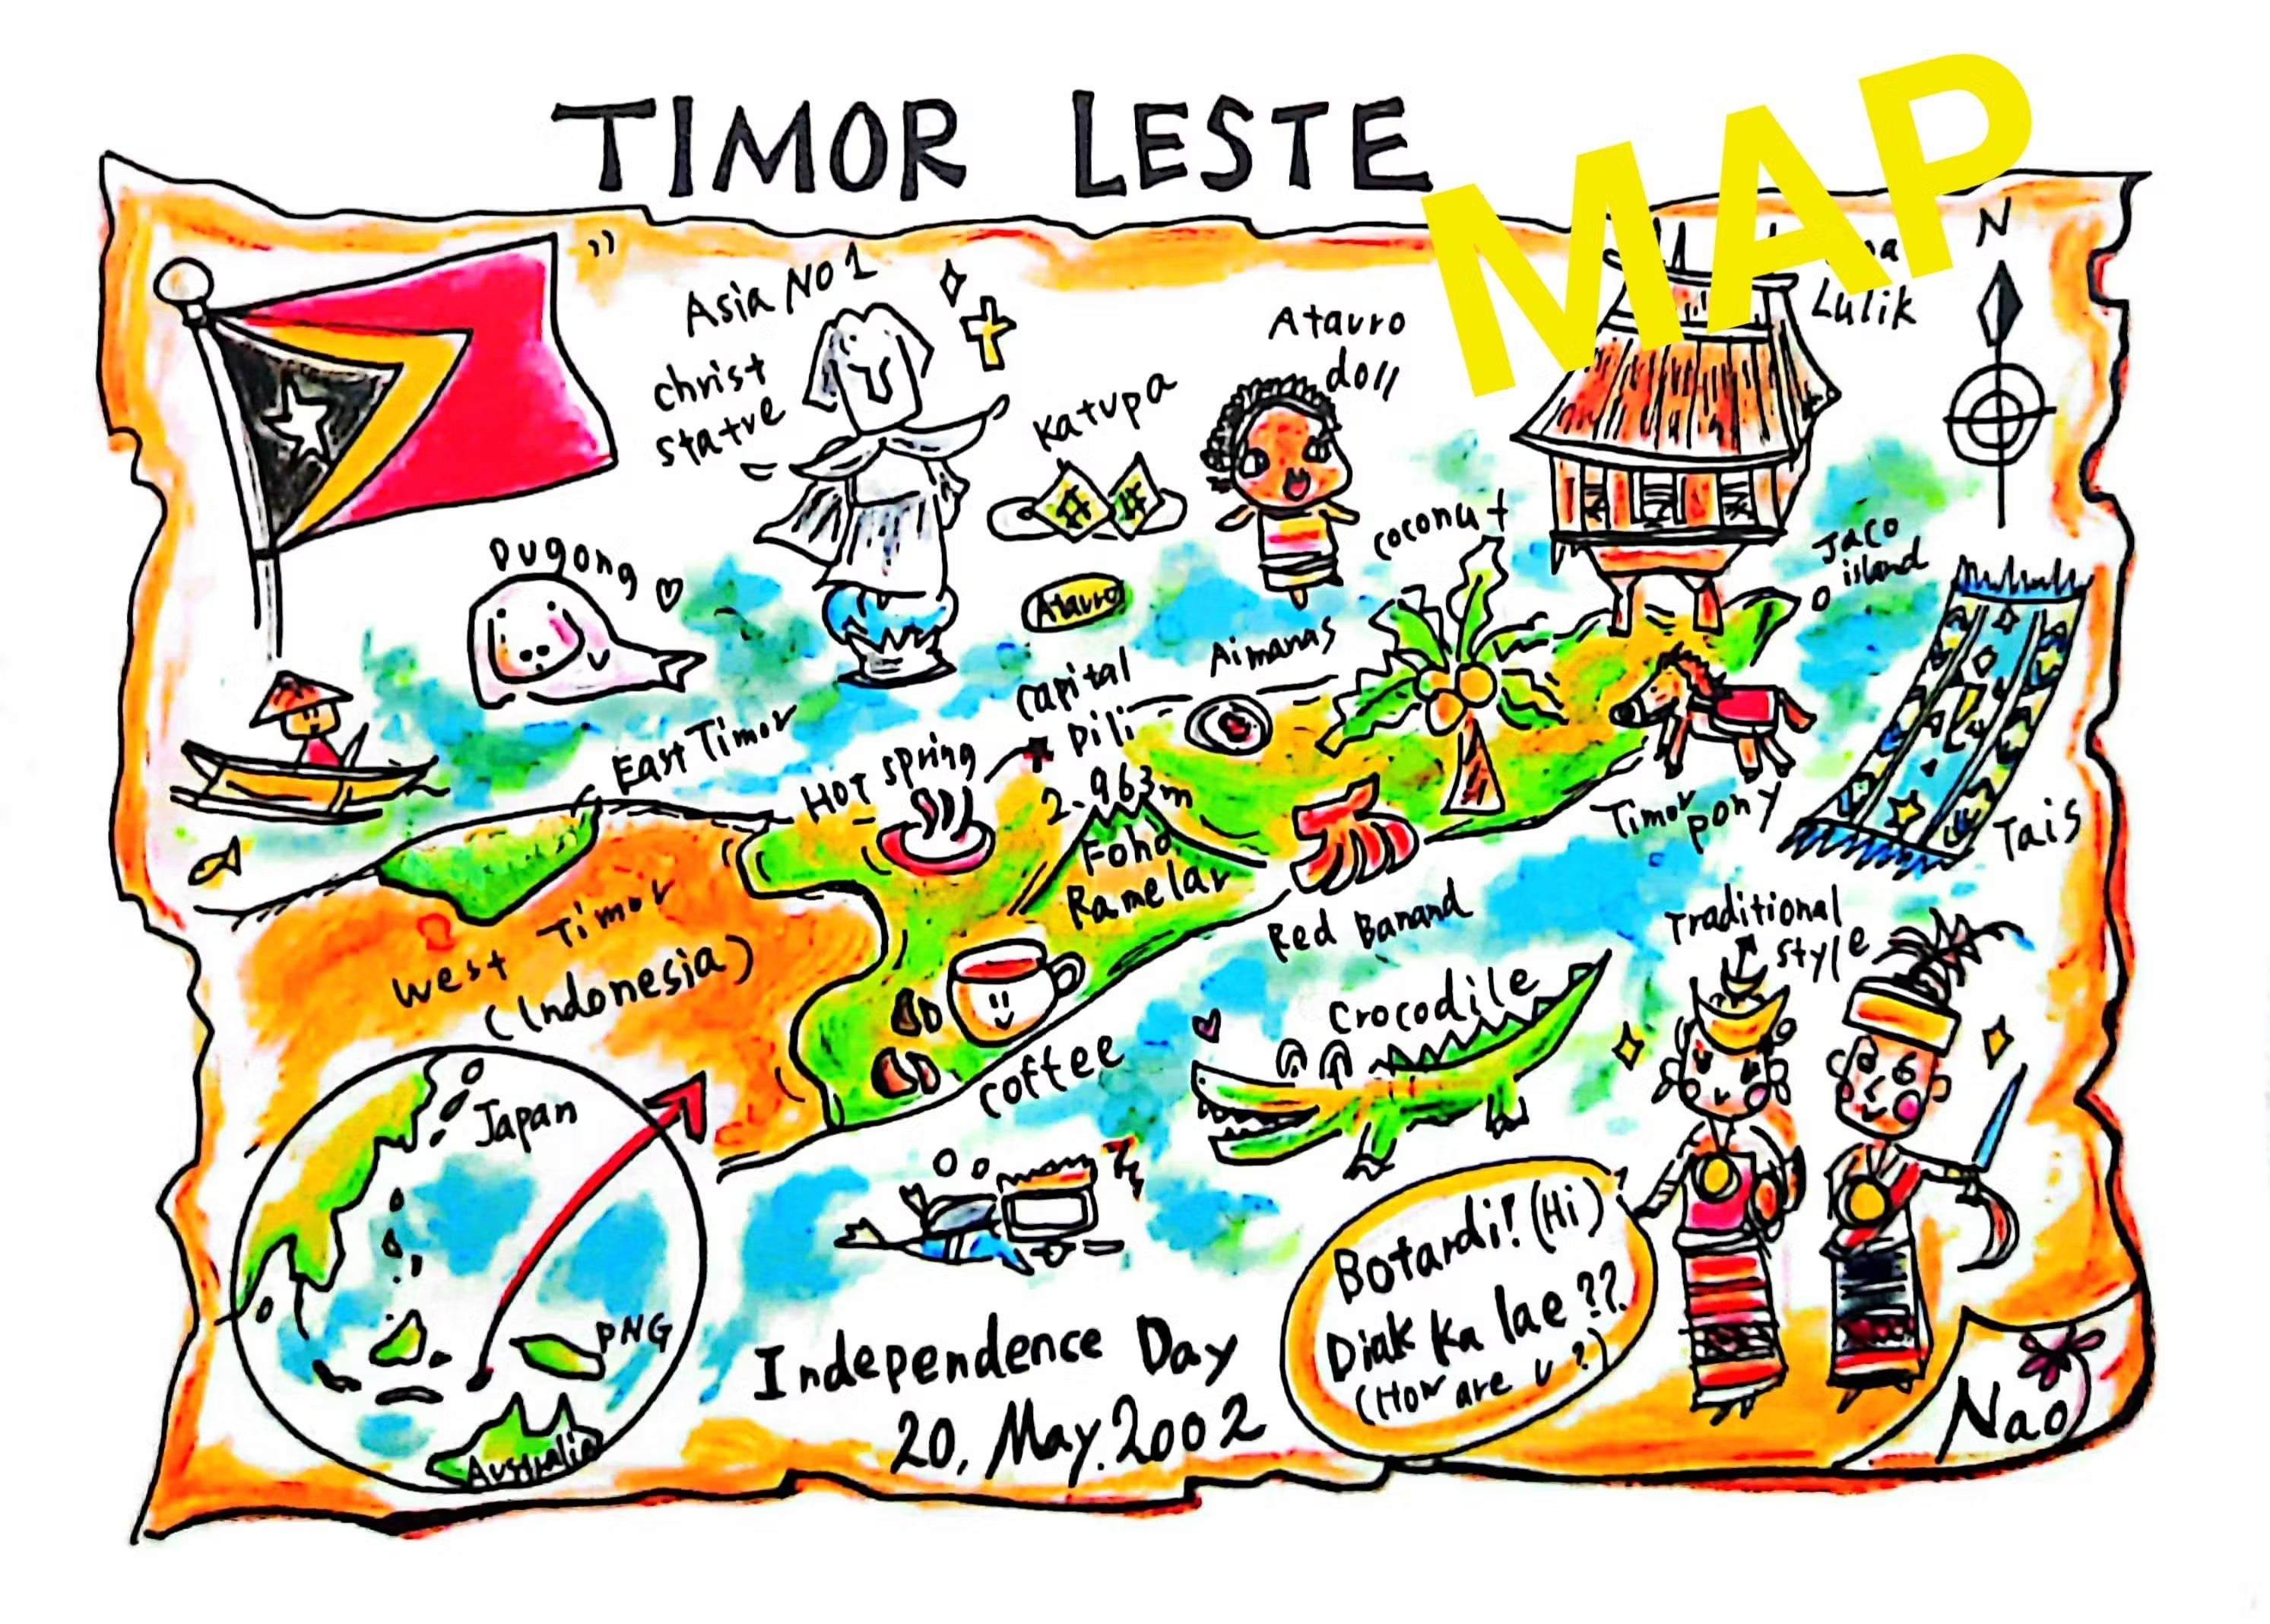 TIMOR LESTE
MAP
N
Asia No 1
christ
statue
Atauro
doll
Lulik
Katupa
Dugong
coconut
Jaco
island
Atauro
Aimanas
capital
Dili
East Timor
Hot spring
2.963m
Foho
Ramelar
Timor pony
Tais
West Timor
(Indonesia)
Red Banana
Traditional
style
Crocodile
coffee
Japan
PNG
Australia
Botardi! (Hi)
Diak ka lae??
(How are u?)
Independence Day
20, May. 2002
Nao